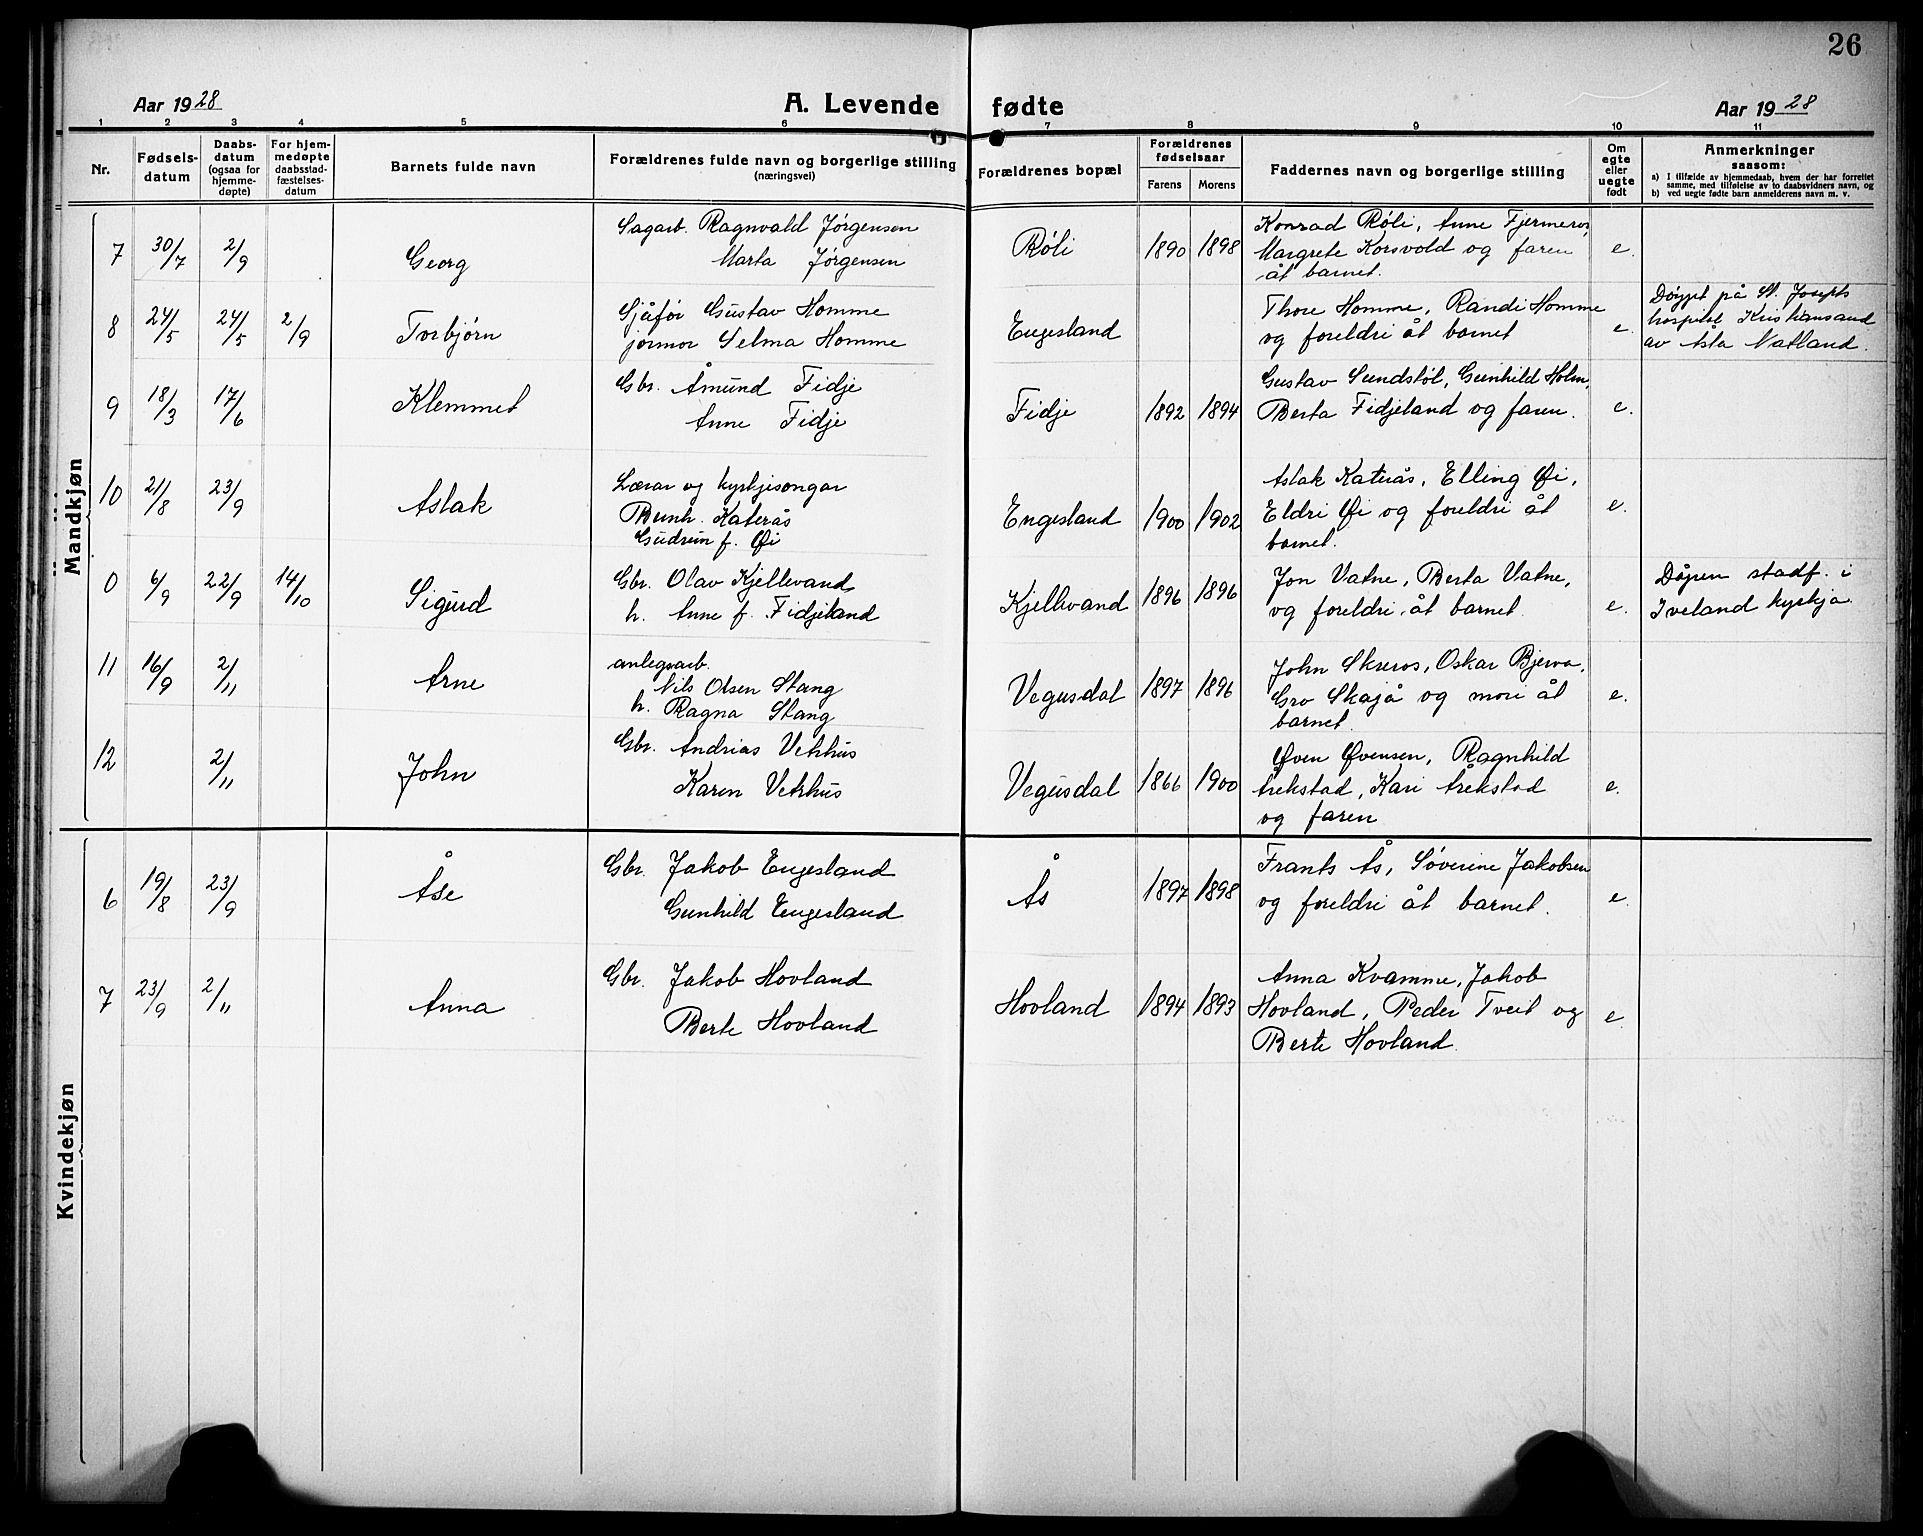 26
Aar 1928
A. Levende fødte
Aar 1928
1 2 3 4 5 6 7 8 9 10 11
Nr.
Fødsels-
datum
Daabs-
datum
(ogsaa for
hjemme-
døpte)
For hjem-
medøpte
daabsstad-
fæstelses-
datum
Barnets fulde navn
Forældrenes fulde navn og borgerlige stilling
(næringsvei)
Forældrenes bopæl
Forældrenes
fødselsaar
Farens Morens
Faddernes navn og borgerlige stilling
Om
egte
eller
uegte
født
Anmerkninger
saasom:
a) I tilfælde av hjemmedaab, hvem der har forrettet
samme, med tilføielse av to daabsvidners navn, og
b) ved uegte fødte barn anmelderens navn m. v.
Mandkjøn
7 30/7 2/9 Georg
Sagarb. Ragnvald Jørgensen
Marta Jørgensen
Røli 1890 1898
Konrad Røli, Anne Fjermeros,
Margrete Korsvold og faren
åt barnet.
e.
8 24/5 24/5 2/9 Torbjørn
Sjåfør Gustav Homme
jormor Selma Homme
Engesland
Thore Homme, Randi Homme
og foreldri åt barnet
e.
Døypt på St. Josephs
hospital Kristiansand
av Åsta Natland.
9 18/3 17/6 Klemmet
Gbr. Åmund Fidje
Anne Fidje
Fidje 1892 1894
Gustav Sundstøl, Gunhild Holm,
Berta Fidjeland og faren.
e.
10 21/8 23/9 Aslak
Lærar og kyrkjesongar
Bernh. Katerås
Gudrun f. Øi
Engesland 1900 1902
Aslak Katerås, Elling Øi,
Eldri Øi og foreldri åt
barnet.
e.
0 6/9 22/9 14/10 Sigurd
Gbr. Olav Kjellevand
h. Anne f. Fidjeland
Kjellevand 1896 1896
Jon Vatne, Berta Vatne,
og foreldri åt barnet.
e.
Dåpen stadf. i
Iveland kyrkja
11 16/9 2/11 Arne
anlegsarb.
Nils Olsen Stang
h. Ragna Stang
Vegusdal 1897 1896
John Skreros, Oskar Bjerva,
Gro Skajå og mori åt
barnet.
e.
12 2/11 John
Gbr. Andrias Vehus
Karen Vehus
Vegusdal 1866 1900
Øven Øvensen, Ragnhild
Årekstad, Kari Årekstad
og faren
e.
Kvindekjøn
6 19/8 23/9 Åse
Gbr. Jakob Engesland
Gunhild Engesland
Ås 1897 1898
Frants Ås, Søverine Jakobsen
og foreldri åt barnet.
e.
7 23/9 2/11 Anna
Gbr. Jakob Hovland
Berte Hovland
Hovland 1894 1893
Anna Kvamme, Jakob
Hovland, Peder Tveit og
Berte Hovland.
e.